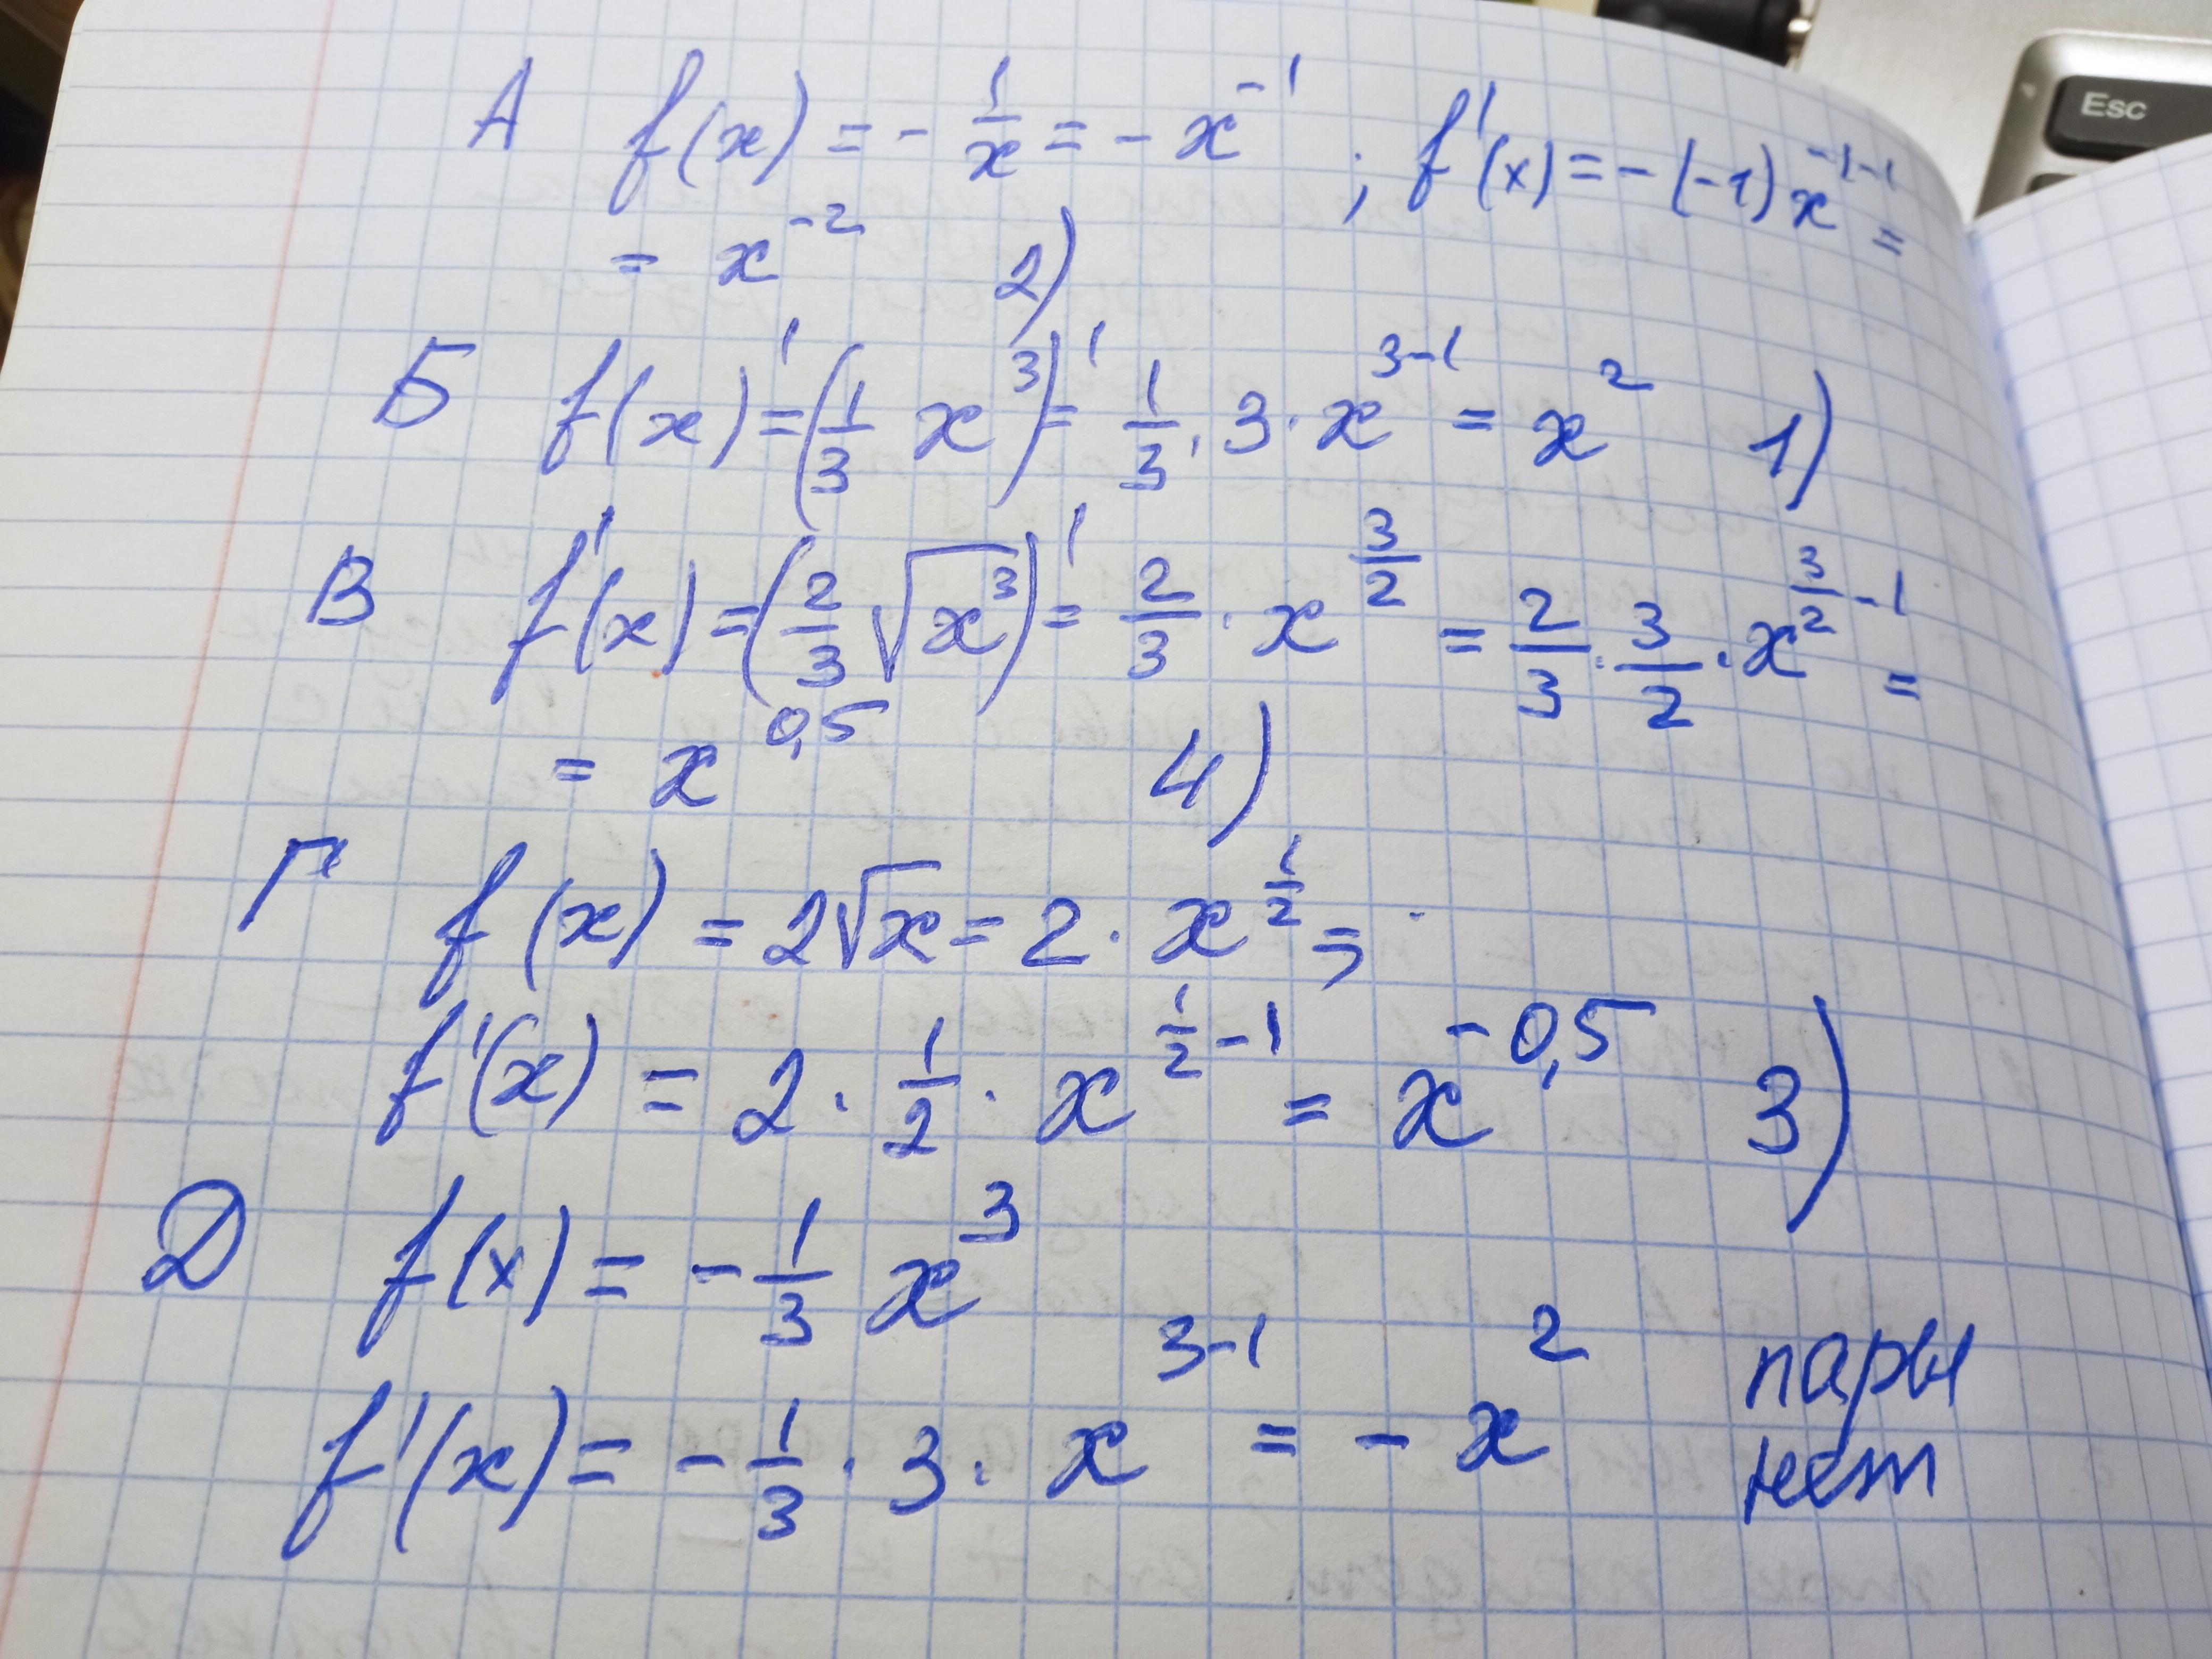 Esc
А f(x) = - 1/x = - x^-1 ; f'(x) = - (-1) x^-1-1 =
= x^-2 2)
Б f(x)' = (1/3 x^3)' = 1/3 · 3 · x^3-1 = x^2 1)
В f'(x) = (2/3 √x^3)' = 2/3 · x^3/2 = 2/3 · 3/2 · x^3/2-1 =
= x^0,5 4)
Г f(x) = 2√x = 2 · x^1/2 =;
f'(x) = 2 · 1/2 · x^1/2-1 = x^-0,5 3)
Д f(x) = - 1/3 x^3
f'(x) = - 1/3 · 3 · x^3-1 = - x^2 пары
нет